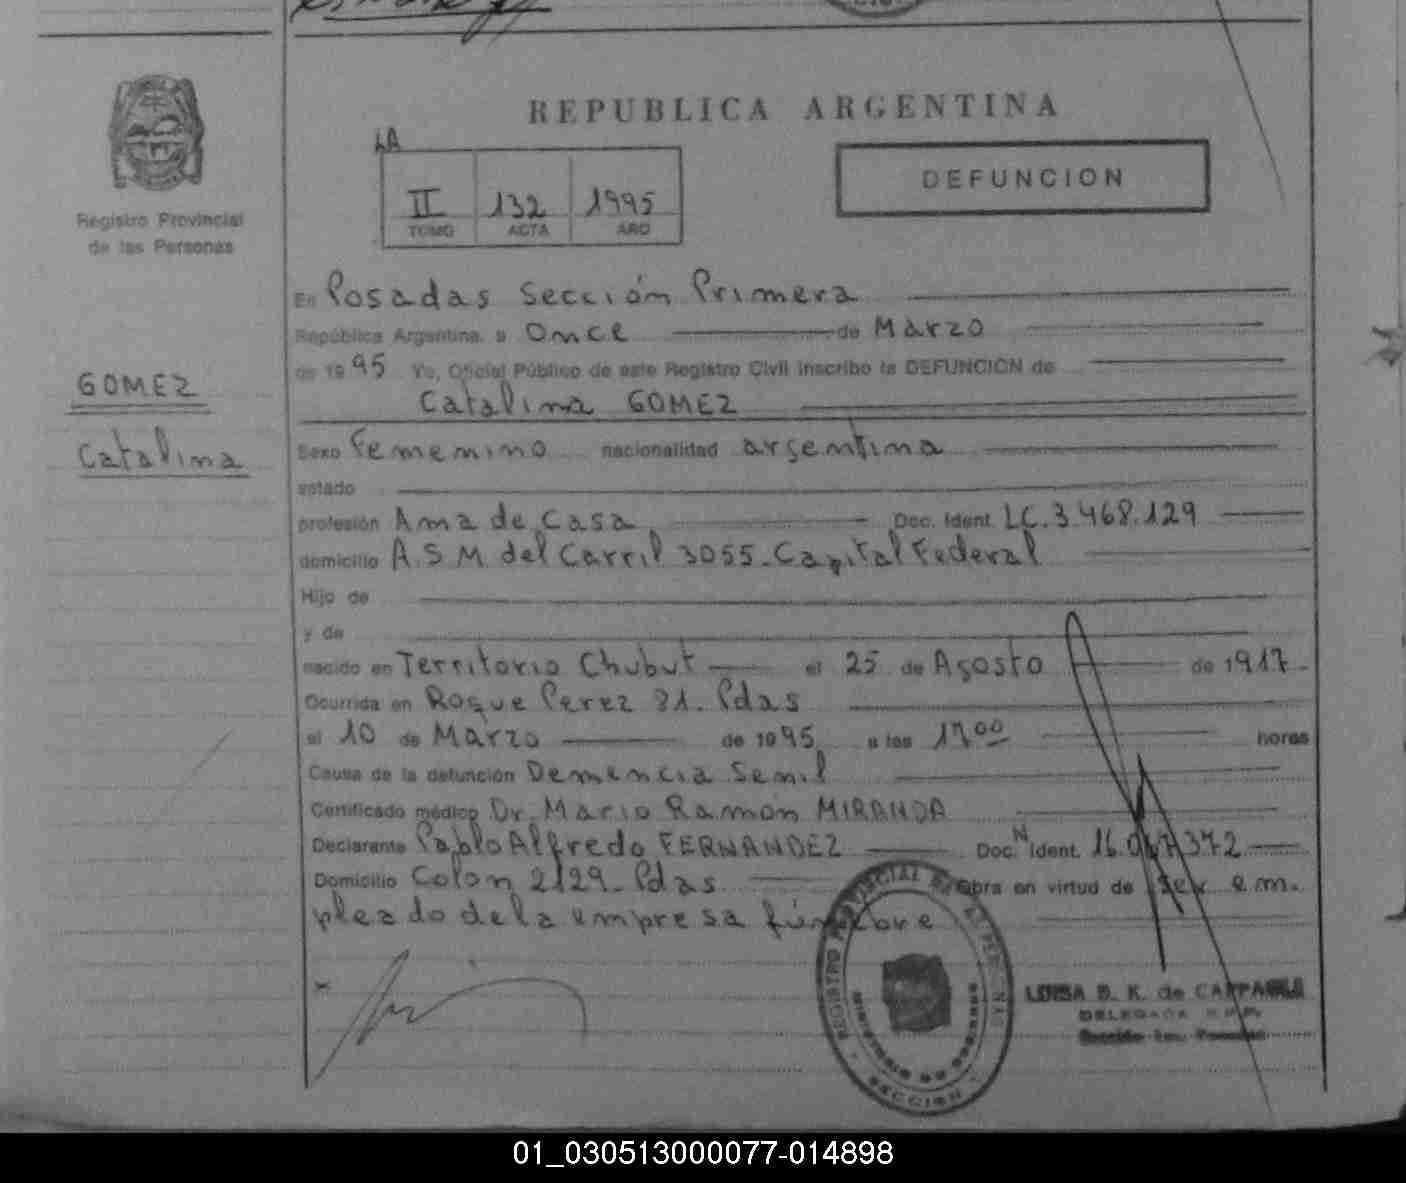 REPUBLICA ARGENTINA
LA
II 132 1995
TOMO ACTA AÑO
DEFUNCION
Registro Provincial
de las Personas
GOMEZ
Catalina
En Posadas Sección Primera
República Argentina, a Once de Marzo
de 1995 Yo, Oficial Público de este Registro Civil inscribo la DEFUNCION de
Catalina GOMEZ
Sexo Femenino nacionalidad argentina
estado
profesión Ama de Casa Doc. Ident. LC.3.468.129
domicilio A.S.M. del Carril 3055-Capital Federal
Hijo de
y de
nacido en Territorio Chubut el 25 de Agosto de 1917-
Ocurrida en Roque Perez 81. Pdas
el 10 de Marzo de 1995 a las 17 00 horas
Causa de la defunción Demencia Senil
Certificado médico Dr. Mario Ramón MIRANDA
Declarante Pablo Alfredo FERNANDEZ Doc. N Ident. 372
Domicilio Colon 2129-Pdas Obra en virtud de ser em-
pleado de la empresa fúnebre
REGISTRO PROVINCIAL DE LAS PERSONAS
SECCION
LUISA B. K. de
DELEGADA
01_030513000077-014898